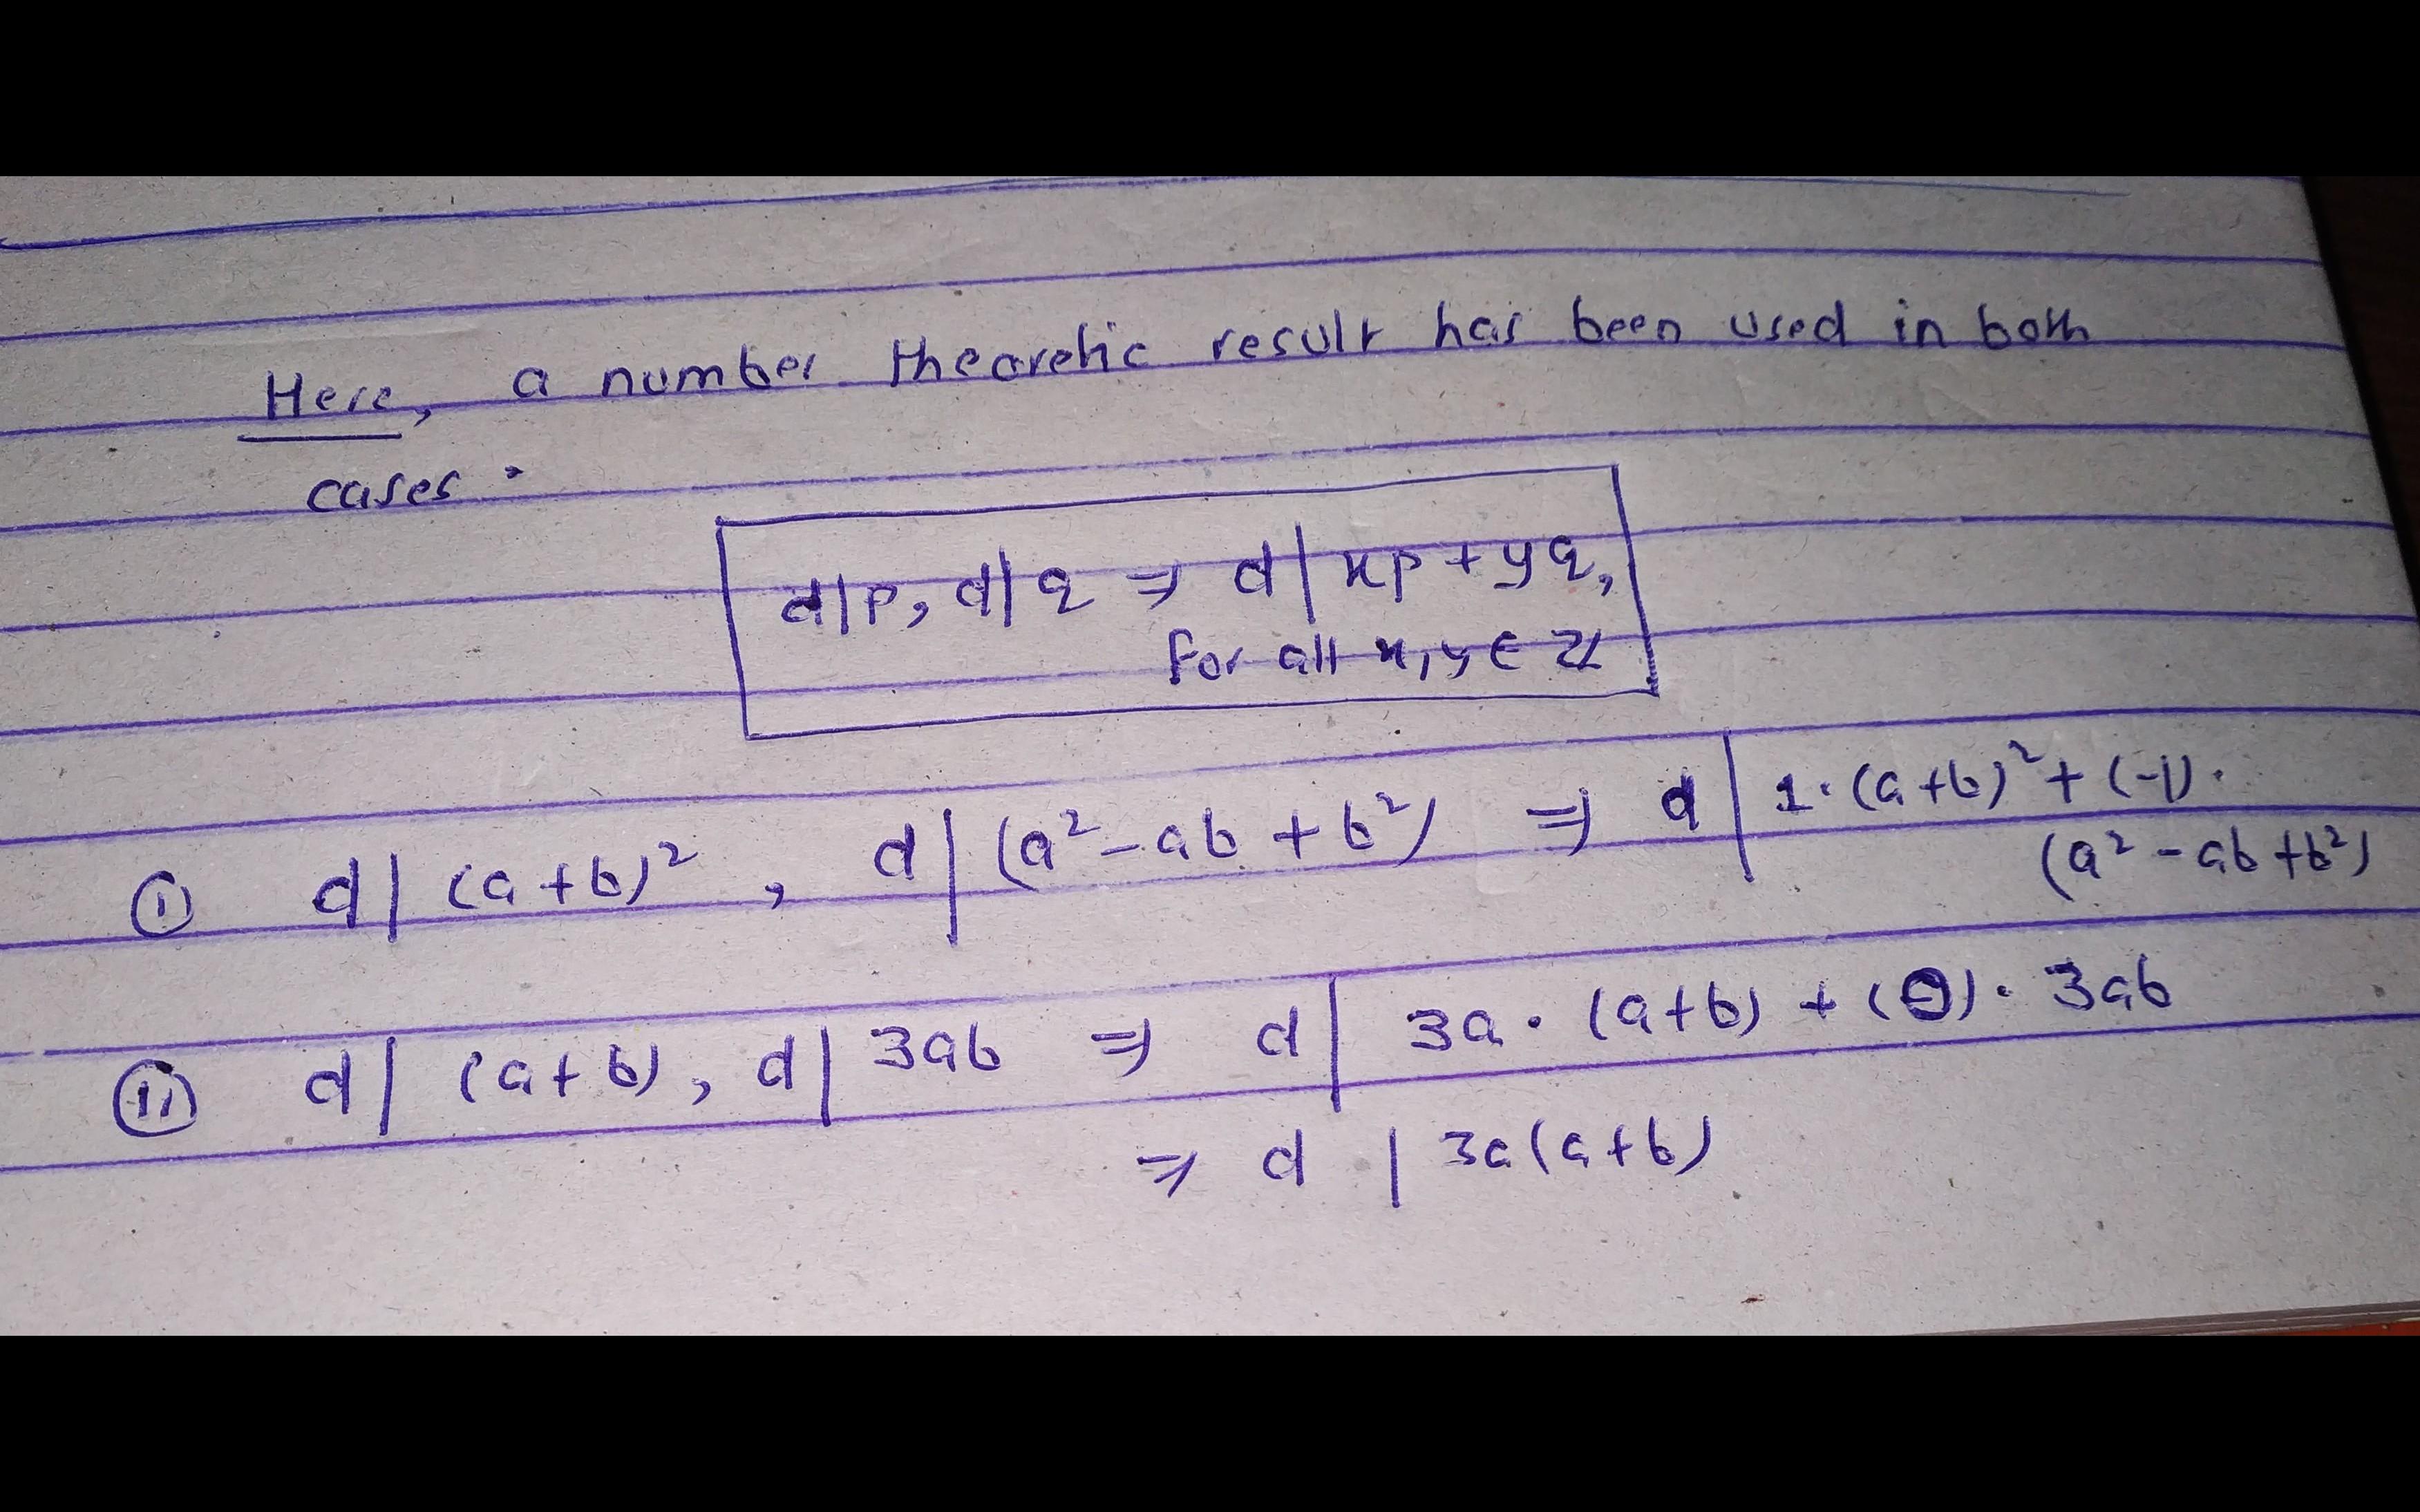 Here, a number theoretic result has been used in both
cases.
d|p, d|q ⇒ d|xp+yq,
for all x,y ∈ ℤ
(i) d|(a+b)², d|(a²-ab+b²) ⇒ d|1·(a+b)²+(-1)·
(a²-ab+b²)
(ii) d|(a+b), d|3ab ⇒ d|3a·(a+b)+(0)·3ab
⇒ d|3a(a+b)